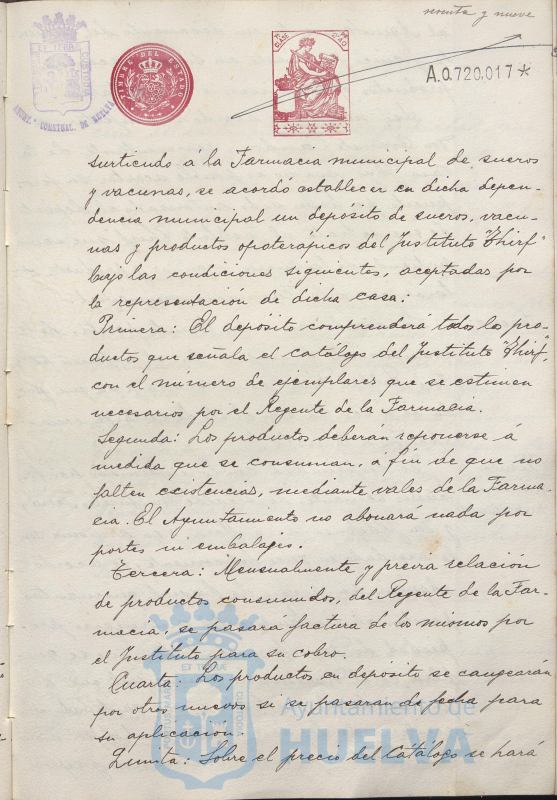 noventa y nueve
AYUNT.º CONSTUAL. DE HUELVA
TIMBRE DEL ESTADO
CLASE
A.0.720.017*
surtiendo á la Farmacia municipal de sueros
y vacunas, se acordó establecer en dicha depen-
dencia municipal un depósito de sueros, vacu-
nas y productos opoterápicos del Instituto "Thirf"
bajo las condiciones siguientes, aceptadas por
la representación de dicha casa:
Primera: El depósito comprenderá todos los pro-
ductos que señala el catálogo del Instituto "Thirf",
con el número de ejemplares que se estimen
necesarios por el Regente de la Farmacia.
Segunda: Los productos deberán reponerse á
medida que se consuman, á fin de que no
falten existencias, mediante vales de la Farma-
cia. El Ayuntamiento no abonará nada por
portes ni embalajes.
Tercera: Mensualmente y previa relación
de productos consumidos, del Regente de la Far-
macia, se pasará factura de los mismos por
el Instituto para su cobro.
Cuarta: Los productos en depósito se canjearán
por otros nuevos si se pasaran de fecha para
su aplicación.
Quinta: Sobre el precio del Catálogo se hará
Ayuntamiento de
HUELVA